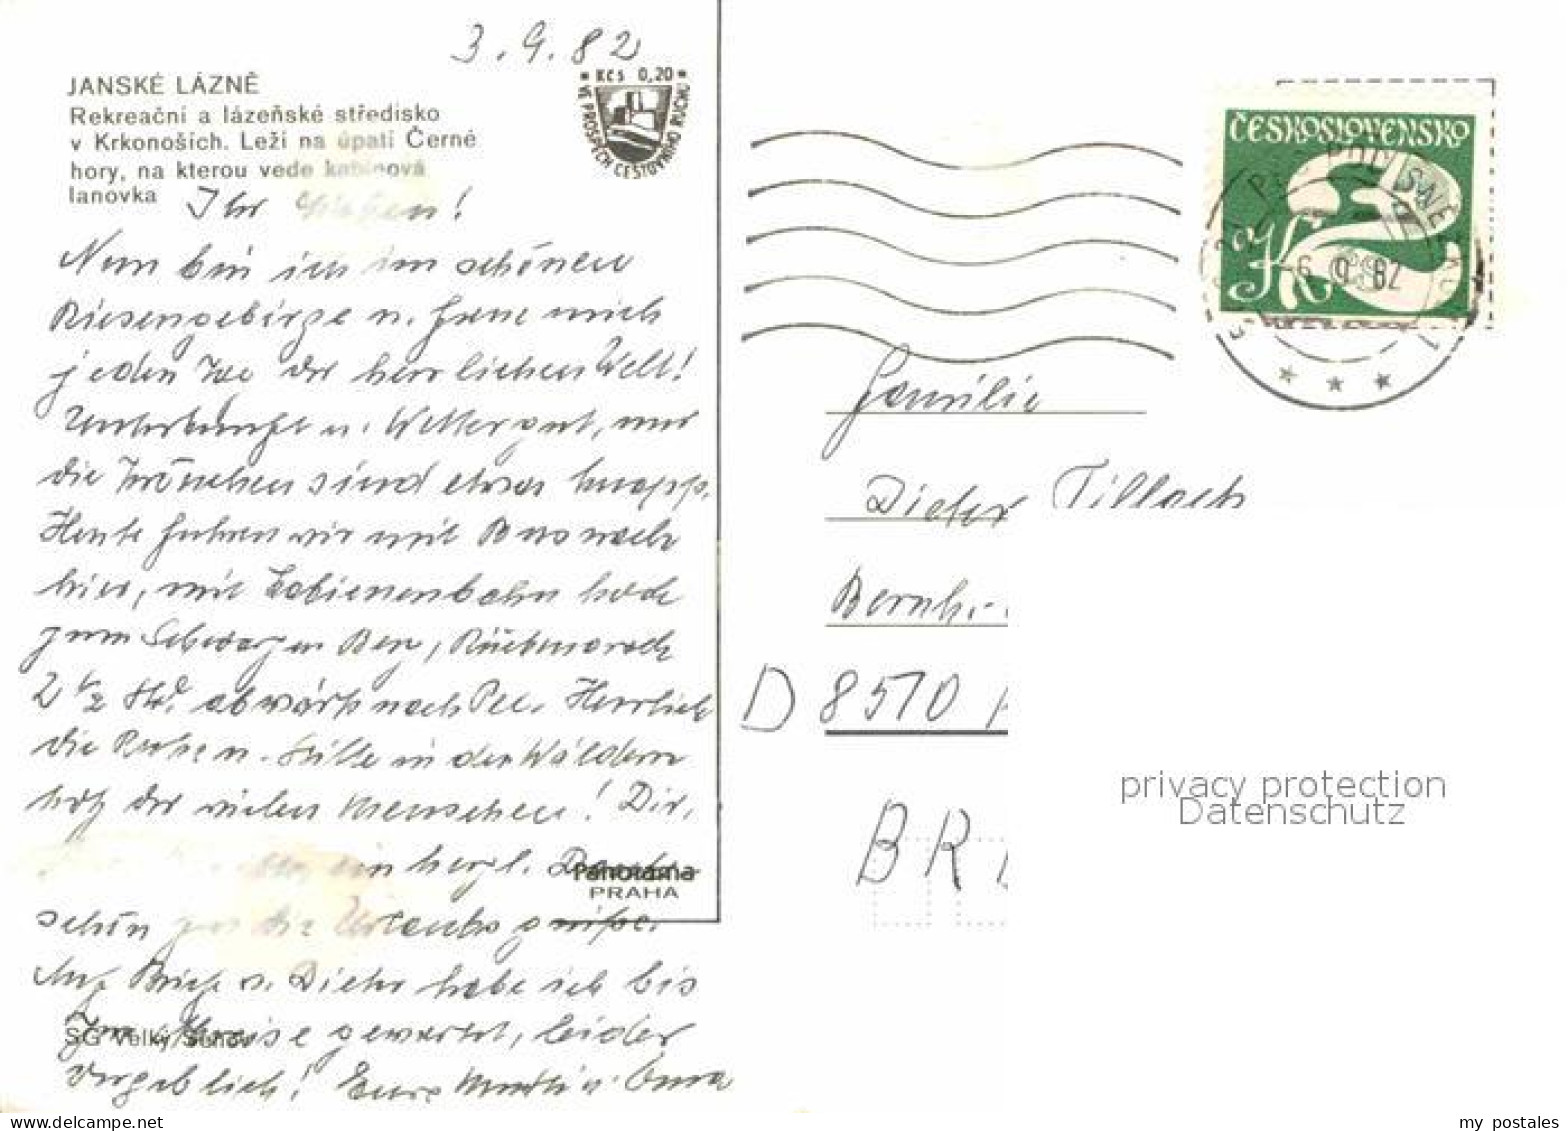 3. 9. 82
JANSKÉ LÁZNĚ
Rekreační a lázeňské středisko
v Krkonoších. Leží na úpatí Černé
hory, na kterou vede kabinová
lanovka
KČS 0,20
VE PROSPĚCH CESTOVNÍHO RUCHU
Ihr Lieben!
Nun bin ich im schönen
Riesengebirge u. freue mich
jeden Tag der herrlichen Welt!
Unterbringg u. Wetter gut, nur
die Krönchen sind etwas knapp.
Heute fuhren wir mit Bus nach
hier, mit Kabienenbahn hoch
zum Schwarzen Berg, Rückmarsch
2 1/2 Std. abwärts nach Pec. Herrlich
die Ruhe u. Stille in den Wäldern
trotz der vielen Menschen! Dir,
ein herzl. Danke
schön für die Urlaubsgrüße.
Auf Brief v. Dieter habe ich bis
zur Abreise gewartet, leider
vergeblich! Eure Mutti u. Oma
Panorama
PRAHA
SG Velký Šenov
ČESKOSLOVENSKO
2 Kčs
-6. 9. 82
Familie
Dieter Tillach
Bernh
D 8570
BR
privacy protection
Datenschutz
my postales